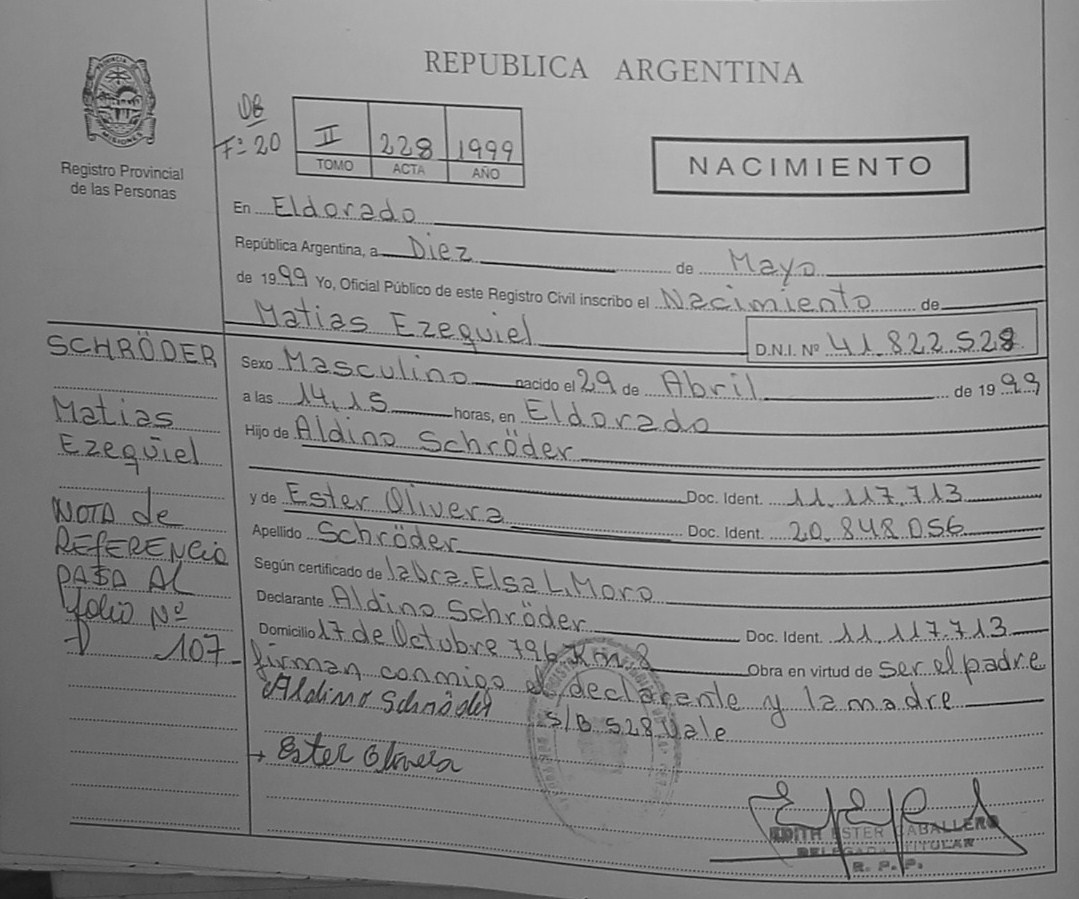 REPUBLICA ARGENTINA
PROVINCIA DE
MISIONES
Registro Provincial
de las Personas
DB
Fº 20
II 228 1999
TOMO ACTA AÑO
NACIMIENTO
En Eldorado
República Argentina, a Diez de Mayo
de 1999 Yo, Oficial Público de este Registro Civil inscribo el Nacimiento de
Matias Ezequiel D.N.I. Nº 41.822.528
Sexo Masculino nacido el 29 de Abril de 1999
a las 14,15 horas, en Eldorado
Hijo de Aldino Schröder
Doc. Ident. 11.117.713
y de Ester Olivera Doc. Ident. 20.848.056
Apellido Schröder
Según certificado de la Dra. Elsa L. Moro
Declarante Aldino Schröder Doc. Ident. 11.117.713
Domicilio 17 de Octubre 796 Km. 8 Obra en virtud de ser el padre
firman conmigo el declarante y la madre
s/B 528 Vale
Aldino Schröder
Ester Olivera
EDITH ESTER CABALLERO
DELEGADA TITULAR
R. P. P.
SCHRÖDER
Matias
Ezequiel
NOTA de
REFERENCIA
PASA AL
folio Nº
107